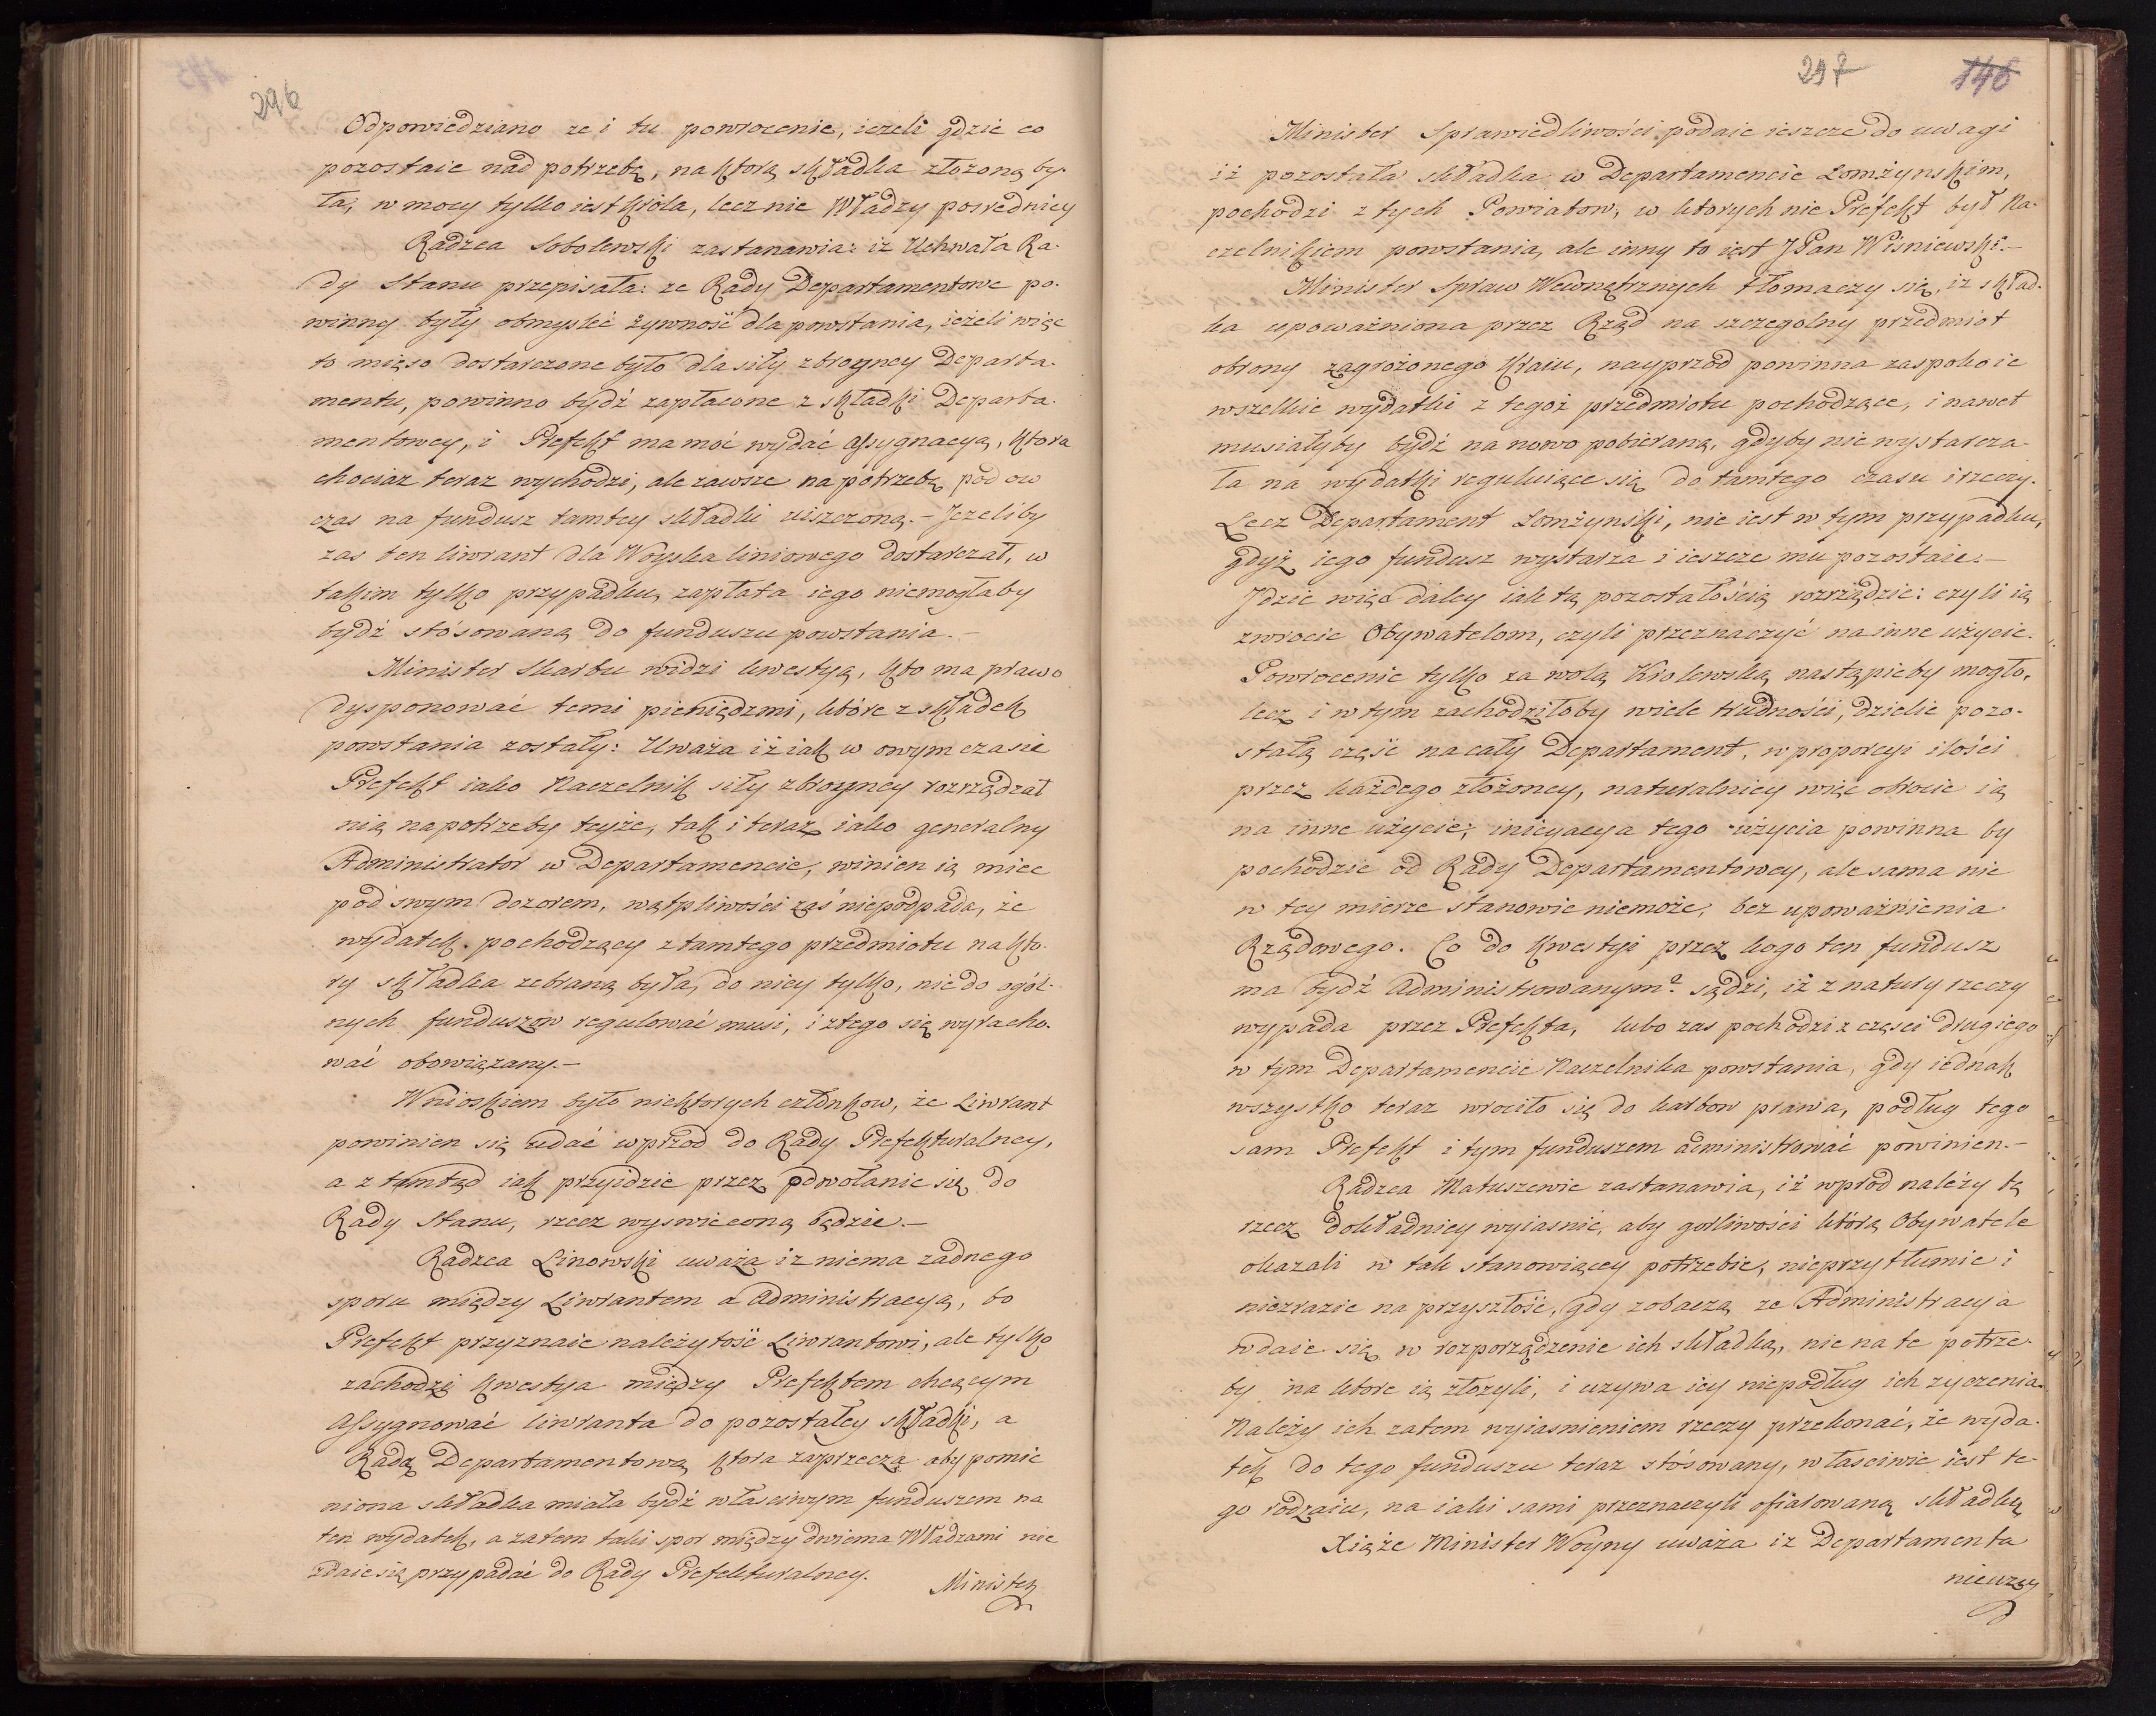 296
Odpowiedziano ze i tu powrocenie, ieżeli gdzie co
pozostaie nad potrzebę, na ktorą składka złożoną by-
ła, w mocy tylko iest Króla, lecz nie Władzy posredniey
Radzca Sobolewski zastanawia: iz Uchwała Ra-
dy Stanu przepisała: ze Rady Departamentowe po-
winny były obmysleć żywność dla powstania, ieżeli więc
to mięso dostarczone było dla siły zbroyney Departa-
mentu, powinno bydź zapłacone z składki Departa-
mentowey, i Prefekt ma moć wydać assygnacyą, ktora
chociaz teraz wychodzi, ale zawsze na potrzebę pod ow
czas na fundusz tamtey składki uiszczoną. – Jezeliby
zas ten liwrant dla Woyska liniowego dostarczał, w
takim tylko przypadku, zapłata iego niemogłaby
bydź stósowaną do funduszu powstania. –
Minister Skarbu widzi kwestyą, kto ma prawo
dysponować temi pieniędzmi, które z składek
powstania zostały: Uważa iż iak w owym czasie
Prefekt iako Naczelnik siły zbroyney rozrządzał
nią na potrzeby teyże, tak i teraz iako generalny
Administrator w Departamencie, winien ią miec
pod swym dozorem, wątpliwości zaś niepodpada, że
wydatek pochodzący z tamtego przedmiotu na kto-
ry składka zebraną była, do niey tylko, nie do ogól-
nych funduszow regulować musi, i z tego się wyracho-
wać obowiązany. –
Wnioskiem było niektorych członkow, że Liwrant
powinien się udać wprzod do Rady Prefekturalney,
a z tamtąd iak przyidzie przez odwołanie się do
Rady Stanu, rzecz wyswieconą będzie. –
Radzca Linowski uważa iz niema zadnego
sporu między Liwrantem a Administracyą, bo
Prefekt przyznaie należytość Liwrantowi, ale tylko
zachodzi kwestya między Prefektem chcącym
assygnować liwranta do pozostałey składki, a
Radą Departamentową ktora zaprzecza aby pomie
niona składka miała bydź właściwym funduszem na
ten wydatek, a zatem taki spor między dwiema Władzami nie
zdaie się przypadać do Rady Prefekturalney.
Minister
297
146
Minister Sprawiedliwości podaie ieszcze do uwagi
iż pozostała składka w Departamencie Lomżynskim,
pochodzi z tych Powiatow, w ktorych nie Prefekt był Na-
czelnikiem powstania, ale inny to iest JPan Wiśniewski. –
Minister Spraw Wewnętrznych tłomaczy się, iz skład-
ka upoważniona przez Rząd na szczegolny przedmiot
obrony zagrożonego Kraiu, nayprzód powinna zaspokoic
wszelkie wydatki z tegoż przedmiotu pochodzące, i nawet
musiałyby bydź na nowo pobieraną, gdyby nie wystarcza-
ła na wydatki reguluiące się do tamtego czasu i rzeczy.
Lecz Departament Lomżynski, nie iest w tym przypadku,
gdyż iego fundusz wystarza i ieszcze mu pozostaie. –
Jdzie więc daley iak tą pozostałością rozrządzic: czyli ią
zwrocic Obywatelom, czyli przeznaczyć na inne użycie.
Powrocenie tylko za wolą Krolewską nastąpicby mogło,
lecz i w tym zachodziłoby wiele trudności, dzielic pozo-
stałą część na cały Departament, w proporcyi ilości
przez każdego złożoney, naturalniey więc obrocic ią
na inne użycie, inicyacya tego użycia powinna by
pochodzic od Rady Departamentowey, ale sama nie
w tey mierze stanowic niemoże, bez upoważnienia
Rządowego. Co do kwestyi przez kogo ten fundusz
ma bydź Administrowanym? sądzi, iż z natury rzeczy
wypada przez Prefekta, lubo zas pochodzi z części drugiego
w tym Departamencie Naczelnika powstania, gdy iednak
wszystko teraz wrociło się do karbow prawa, podług tego
sam Prefekt i tym funduszem administrować powinien. –
Radzca Matuszewic zastanawia, iż wprod należy tę
rzecz dokładniey wyiasnić, aby gorliwości którą Obywatele
okazali w tak stanowiącey potrzebie, nieprzytłumic i
niezrazic na przyszłość, gdy zobaczą ze Administracya
wdaie się w rozporządzenie ich składką, nie na te potrze-
by na ktore ią złozyli, i uzywa iey niepodług ich zyczenia.
Należy ich zatem wyiasnieniem rzeczy przekonać, że wyda-
tek do tego funduszu teraz stósowany, własciwie iest te-
go rodzaiu, na iaki sami przeznaczyli ofiarowaną składkę
Xiąże Minister Woyny uważa iz Departamenta
nieuzy